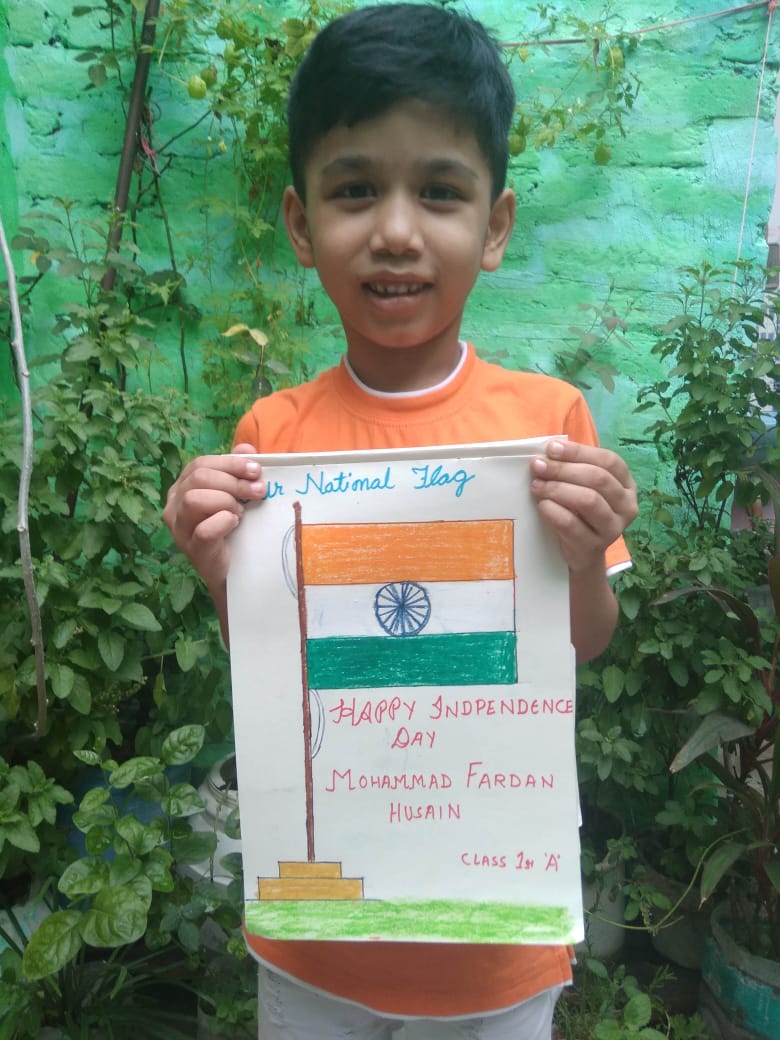 Our National Flag
HAPPY INDPENDENCE
DAY
MOHAMMAD FARDAN
HUSAIN
CLASS 1st 'A'